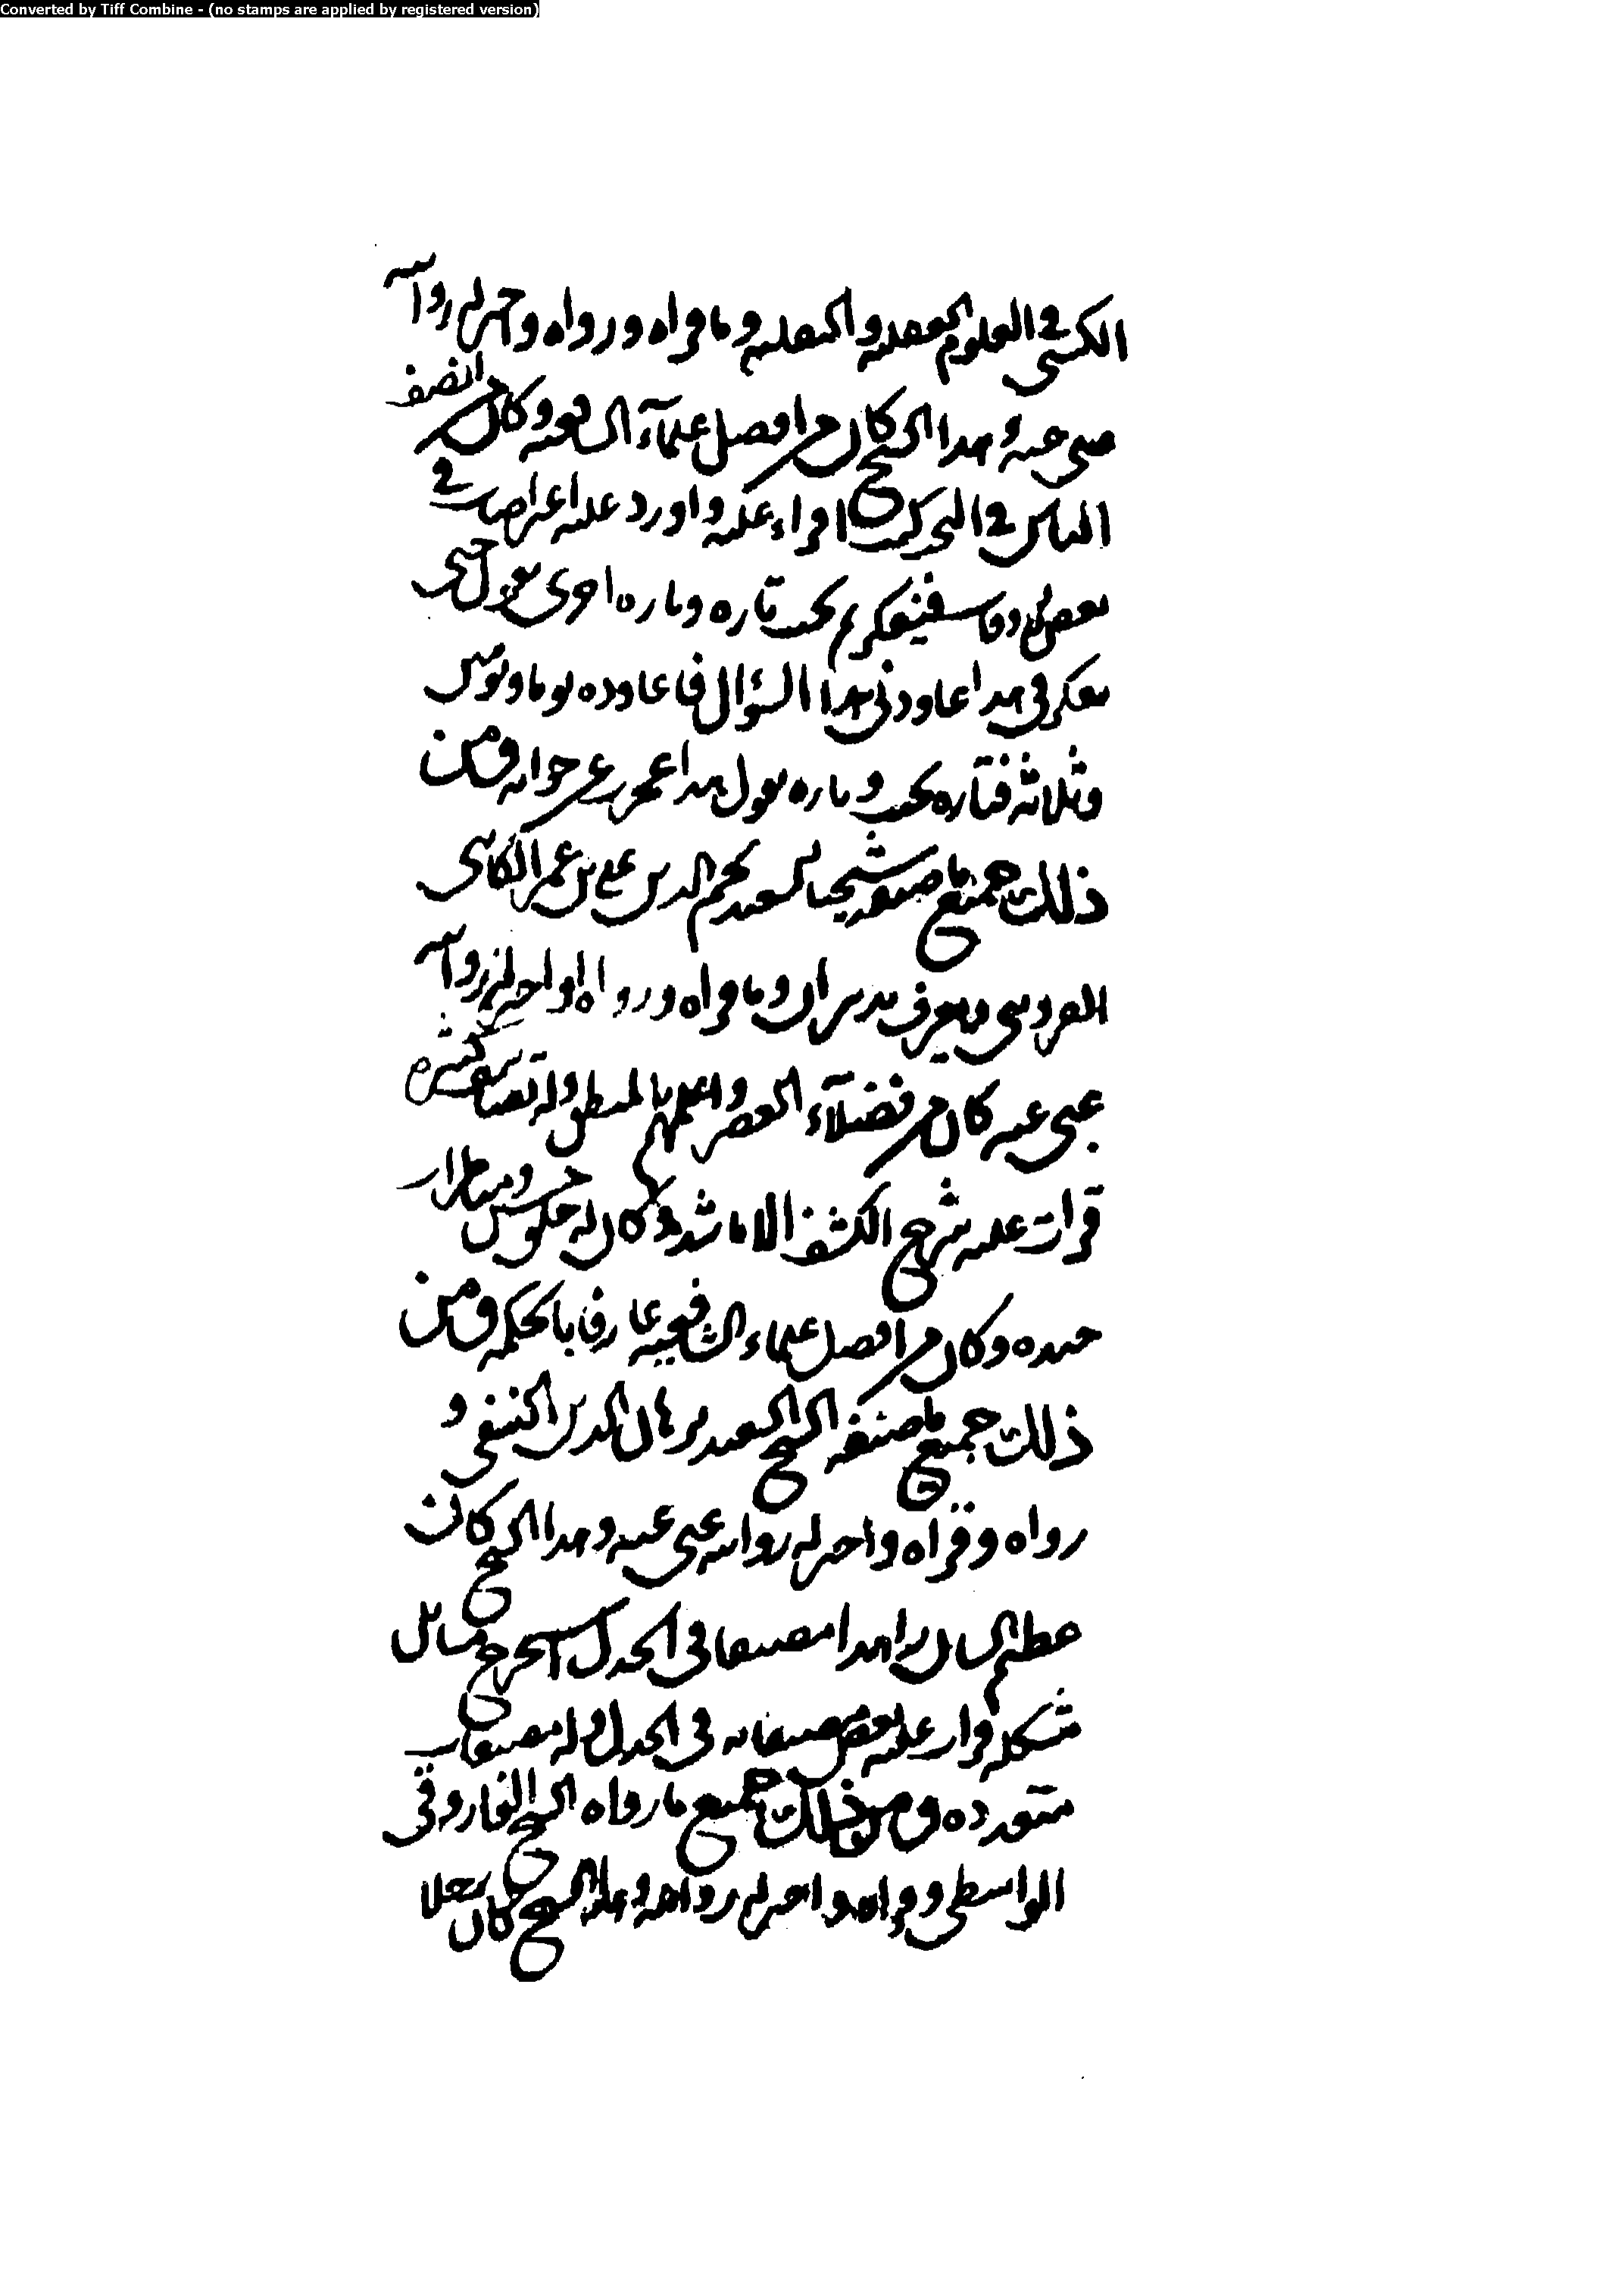 Converted by Tiff Combine - (no stamps are applied by registered version)
الكشي في العلوم العقلية والنقلية وما قراه ورواه واجيز له روايته
عني عنه وهذا الشيخ كان من افضل علماء الشافعية وكان من انصف
الناس في البحث كنت اقراء عليه واورد عليه اعتراضات في
بعض الاوقات فيفكر ثم يجيب تارة وتارة اخرى يقول حتى
نفكر في هذا عاودني هذا السؤال فاعاوده يوما ويومين
وثلاثة فتارة يجيب وتارة يقول هذا عجزت عن جوابه ومن
ذلك جميع ما صنفه شيخنا السعيد نجم الدين علي بن عمر الكاتبي
القزويني ويعرف بدبيران وما قراه ورواه او اجيز له روايته
عني عنه كان من فضلاء العصر واعلمهم بالمنطق وله تصانيف كثيرة
قرات عليه شرح الكشف الا ما شذ وكان له خلق حسن ومناظرات
جيدة وكان من افضل علماء الشافعية عارفا بالحكمة ومن
ذلك جميع ما صنفه الشيخ السعيد برهان الدين النسفي و
رواه وقراه واجيز له روايته عني عنه وهذا الشيخ كان
عظيم الشان زاهدا مصنفا في الجدل استخرج مسائل
مشكلة قرات عليه بعض مصنفاته في الجدل وله مصنفات
متعددة ومن ذلك جميع ما رواه الشيخ الفاروقي
الواسطي وقراه واجيز له روايته وهذا الشيخ كان رجلا